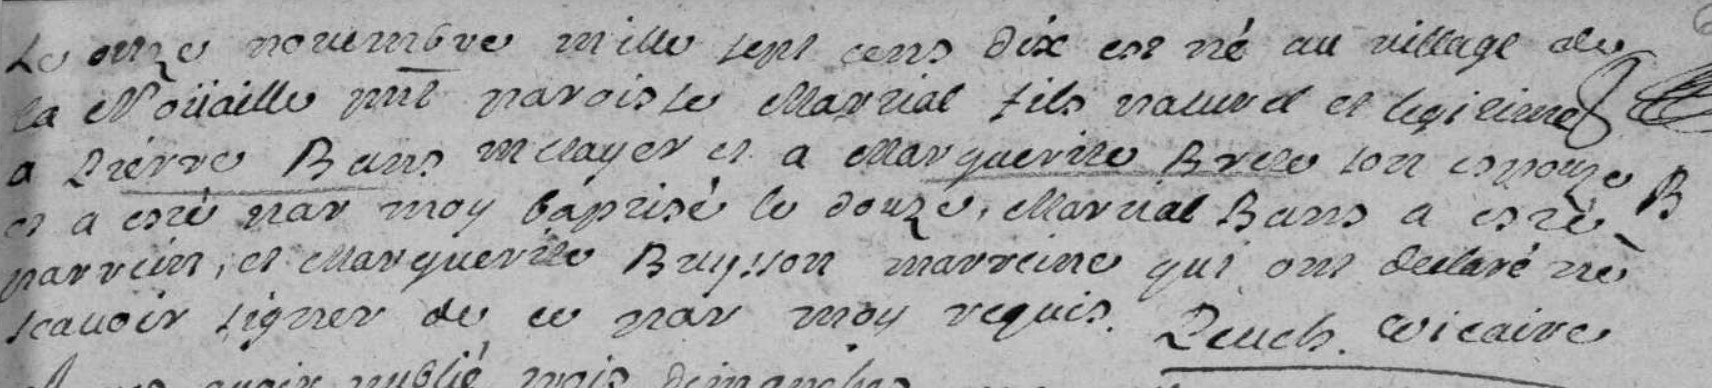 Le onze novembre mille sept cens dix est né au village de
la Noüaille pnt paroisse Martial fils naturel et legitime
a Pierre Bans metayer et a Marguerite Brele son espouze B
et a esté par moy baptisé le douze, Martial Bans a esté
parrein, et Marguerite Buysson marreine qui ont declaré ne
scauoir signer de ce par moy requis. Peuch. vicaire
auoir publié trois dimanches